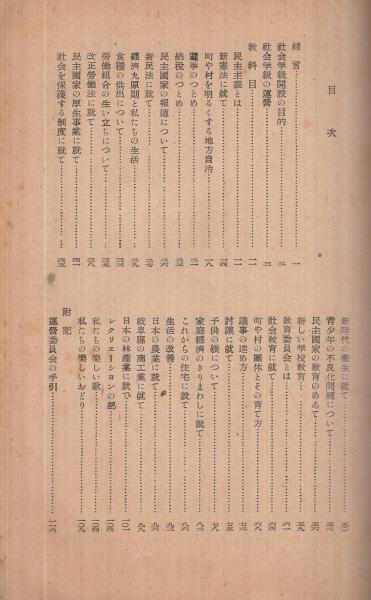 目次
緒言…一
社会学級開設の目的
社会学級の運営
教科目…二
民主主義とは…二
新憲法に就て
町や村を明るくする地方自治
選挙のつとめ
納税のつとめ
民主國家の報道について
新民法に就て
経済九原則と私たちの生活
食糧の供出について
労働組合の生い立ちについて
改正労働法に就て
民主國家の厚生事業に就て
社会を保護する制度に就て
新時代の衞生に就て…五〇
青少年の不良化問題について
民主國家の教育のめあて
新しい学校教育…五九
教育委員会とは…六一
社会教育に就て
町や村の團体とその育て方…六八
議事の進め方
討議に就て…七五
子供の躾について…七八
家庭経済のきりまわしに就て
これからの住宅に就て…八六
生活の改善
日本の農業に就て…九六
岐阜縣の商工業に就て…九九
日本の林産業に就て…一〇一
レクリエーションの部…一〇四
私たちの楽しい歌…一〇四
私たちの楽しいおどり…一〇九
附記
運營委員会の手引…一一六